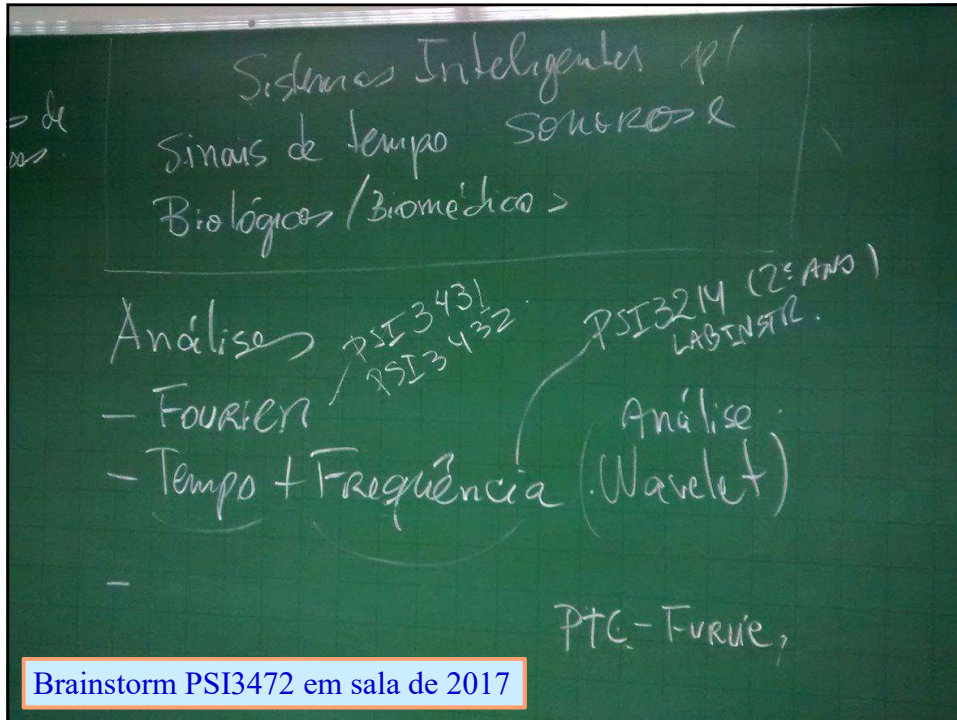 Sistemas Inteligentes p/
s de
Sinais de tempo SONOROS e
Biológicos/Biomédicos
Análises
PSI3431
PSI3432
PSI3214 (2º ANO)
LABINSTR.
- FOURIER
Análise
- Tempo + Frequência (Wavelet)
-
PTC-FURUIE,
Brainstorm PSI3472 em sala de 2017